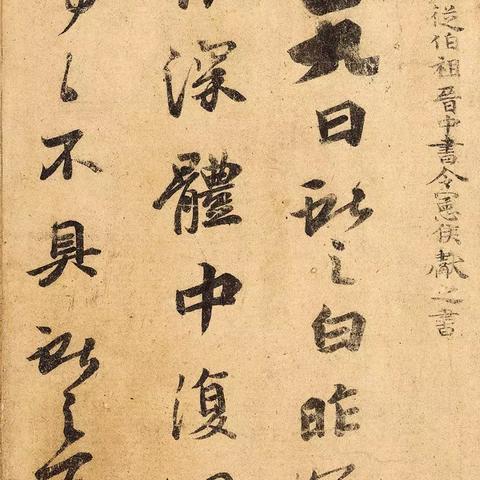 從伯祖晉中書令憲侯獻之書
九日獻之白昨
深體中復
不具獻之